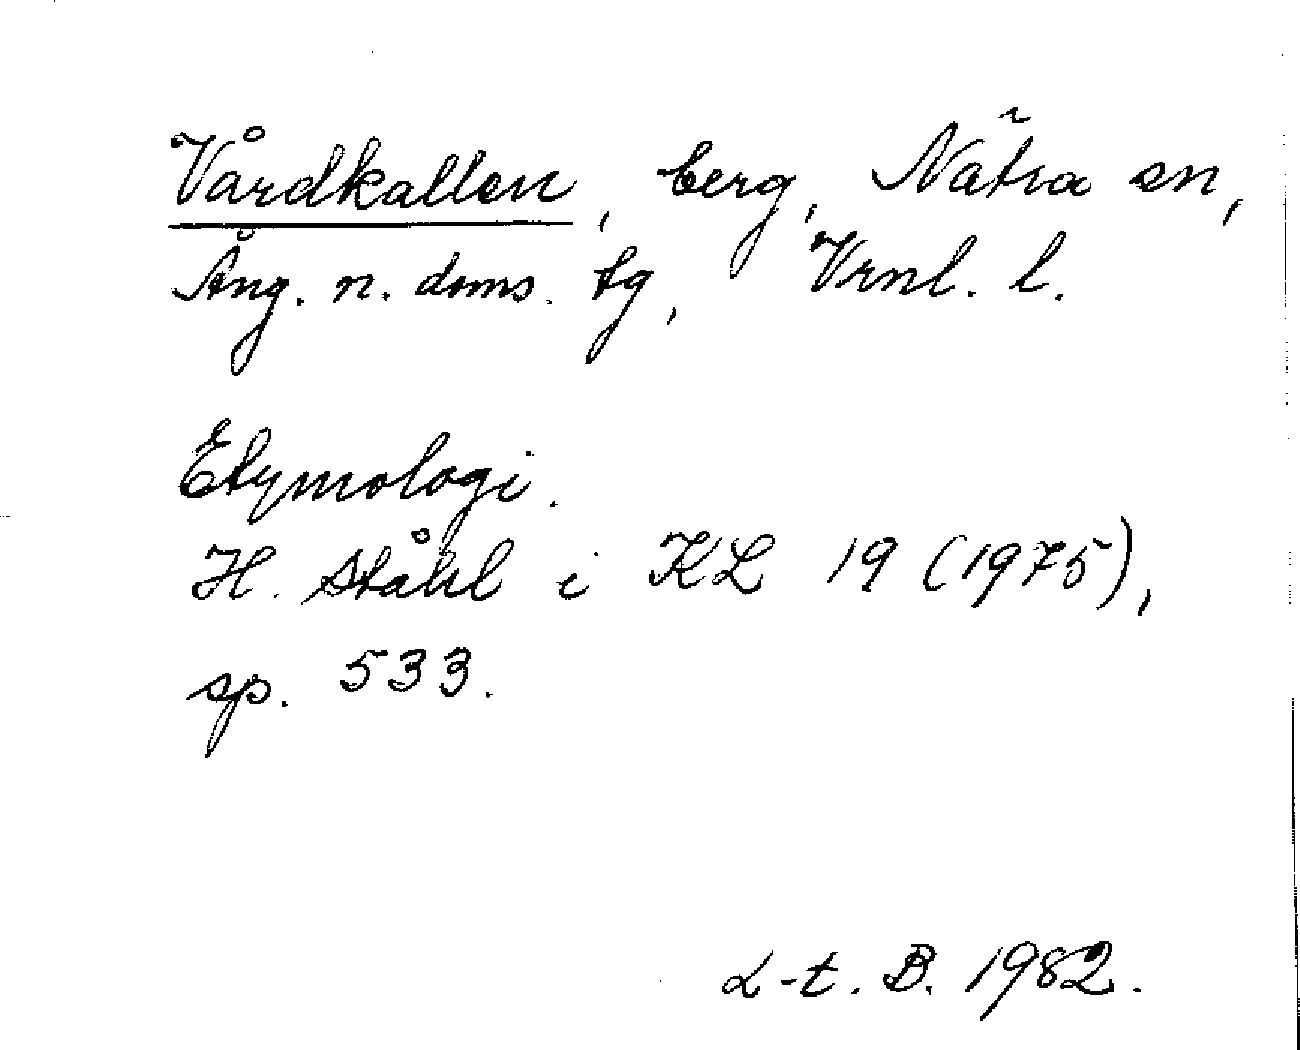 Vårdkallen, berg, Nätra sn,
Ång. n. doms. tg, Vrnl. l.
Etymologi.
H. Ståhl i KL 19 (1975),
sp. 533.
L-t. B. 1982.